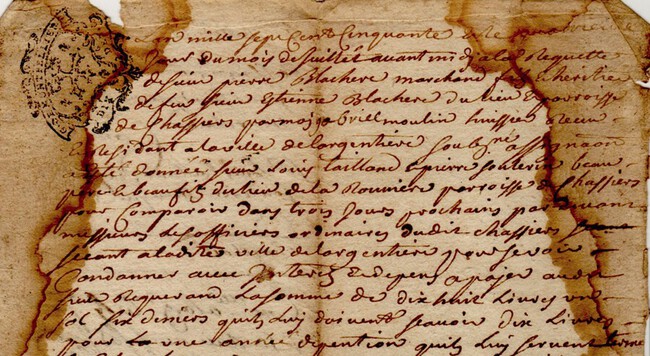 Lan mille sept Cent Cinquante et le
Jour du mois de Juillet avant midi a la Requette
de sieur pierre Blachere marchand fils et heretier
de feu sieur Etienne Blachere du lieu et parroisse
de Chassiers par moy gabriel moulin huissier
Residant a la ville de largentiere soubzne assignaon
esté donnée a sieur Louis tailland a pierre beau
pere et beaufils du lieu de la Rouviere parroisse de Chassiers
pour Comparoir dans trois Jours prochains par devant
messieurs les officiers ordinaires dudit Chassiers
seeant a ladite ville de largentiere pour se voir
Condanner avec Interes et depens a payer audit
sieur Requerand La somme de dix huit Livres un
sol six deniers quils Luy doivent scavoir dix Livres
pour La une année de pention quils Luy servent